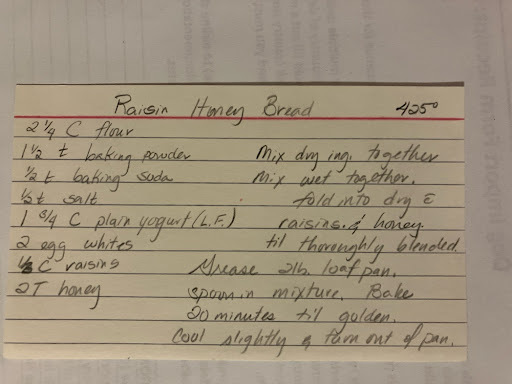 Raisin Honey Bread 425°
2 1/4 C flour
1 1/2 t baking powder
1/2 t baking soda
1/2 t salt
1 3/4 C plain yogurt (L.F.)
2 egg whites
1/3 C raisins
2T honey
Mix dry ing. together
Mix wet together.
fold into dry c̄
raisins & honey
til thoroughly blended.
Grease 2lb. loaf pan.
spoon in mixture. Bake
20 minutes til golden.
Cool slightly & turn out of pan.